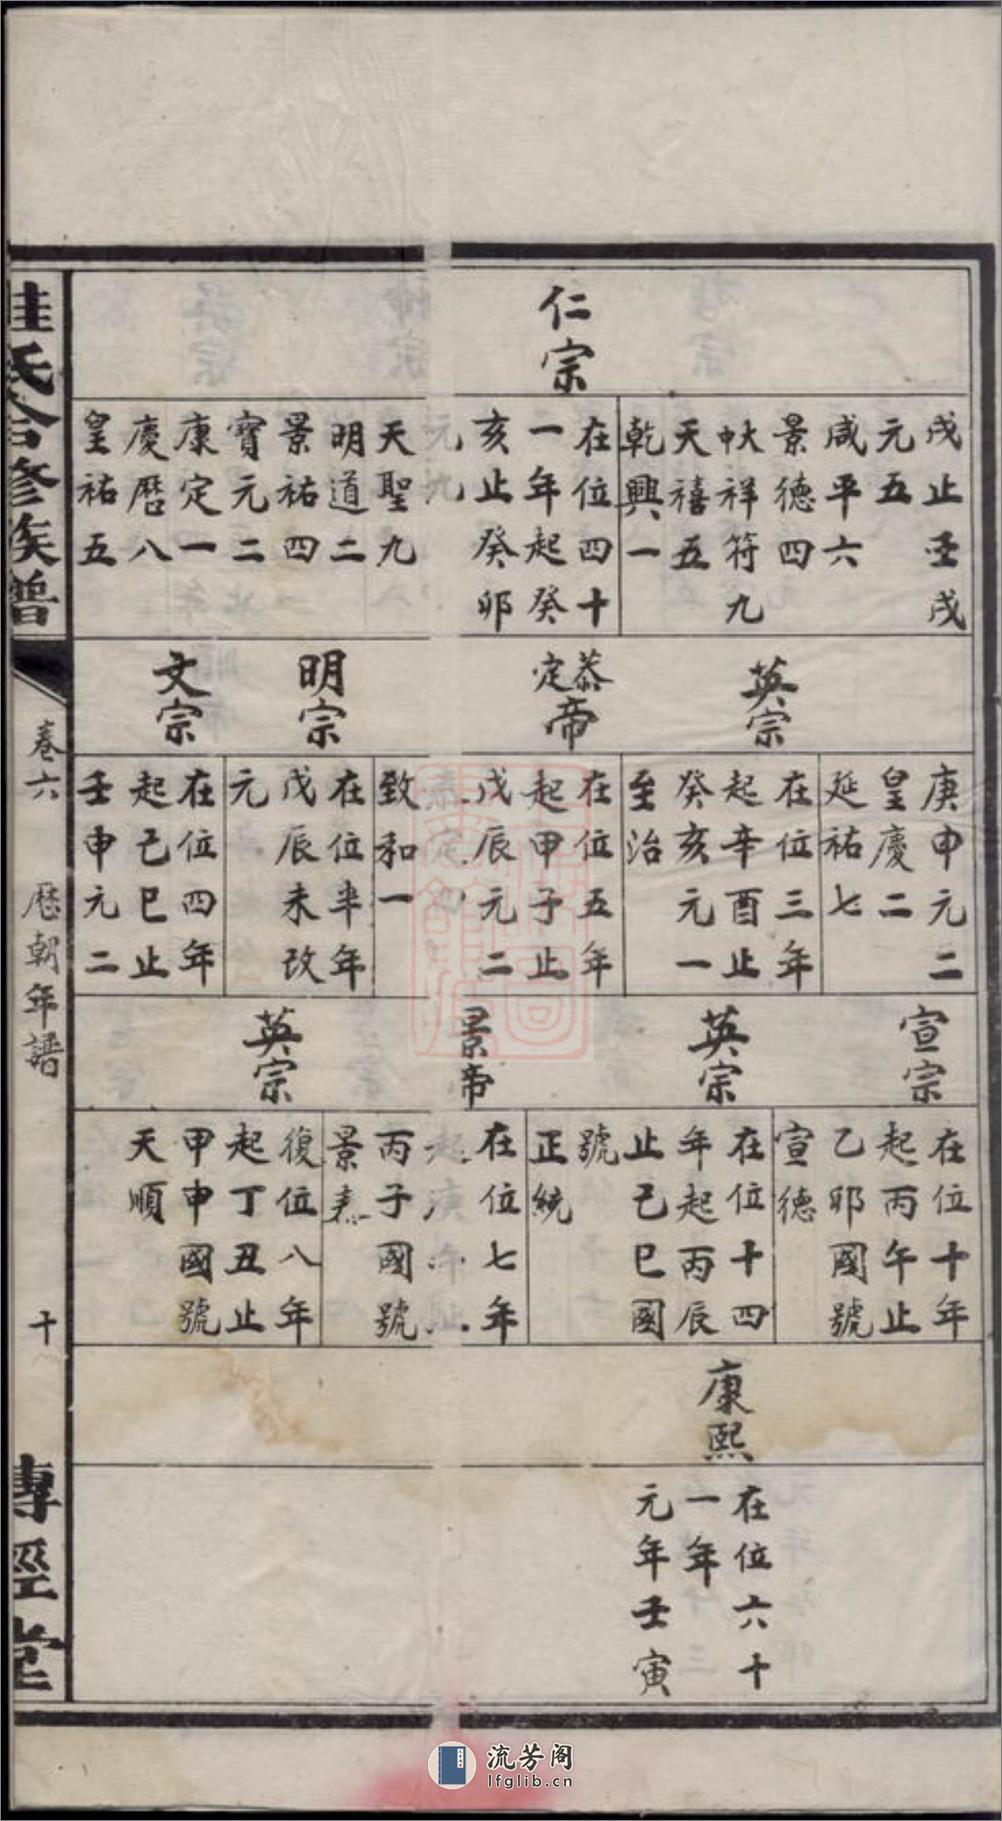 仁宗
戌止壬戌
元五
咸平六
景德四
大
中祥符九
天禧五
乾興一
在位四十
一年起癸
亥止癸卯
元九
天聖九
明道二
景祐四
寶元二
康定一
慶曆八
皇祐五
英宗
泰定帝
明宗
文宗
庚申元二
皇慶二
延祐七
在位三年
起辛酉止
癸亥元一
至治
在位五年
起甲子止
戊辰元二
致和一
在位半年
戊辰未改
元
在位四年
起己巳止
壬申元二
宣宗
英宗
景帝
英宗
在位十年
起丙午止
乙卯國號
宣德
在位十四
年起丙辰
止己巳國
號
正統
在位七年
起庚午止
丙子國號
景泰
復位八年
起丁丑止
甲申國號
天順
康熙
在位六十
一年
元年壬寅
桂氏合修族譜
卷六 歷朝年譜 十
傳經堂
流芳阁
lfglib.cn